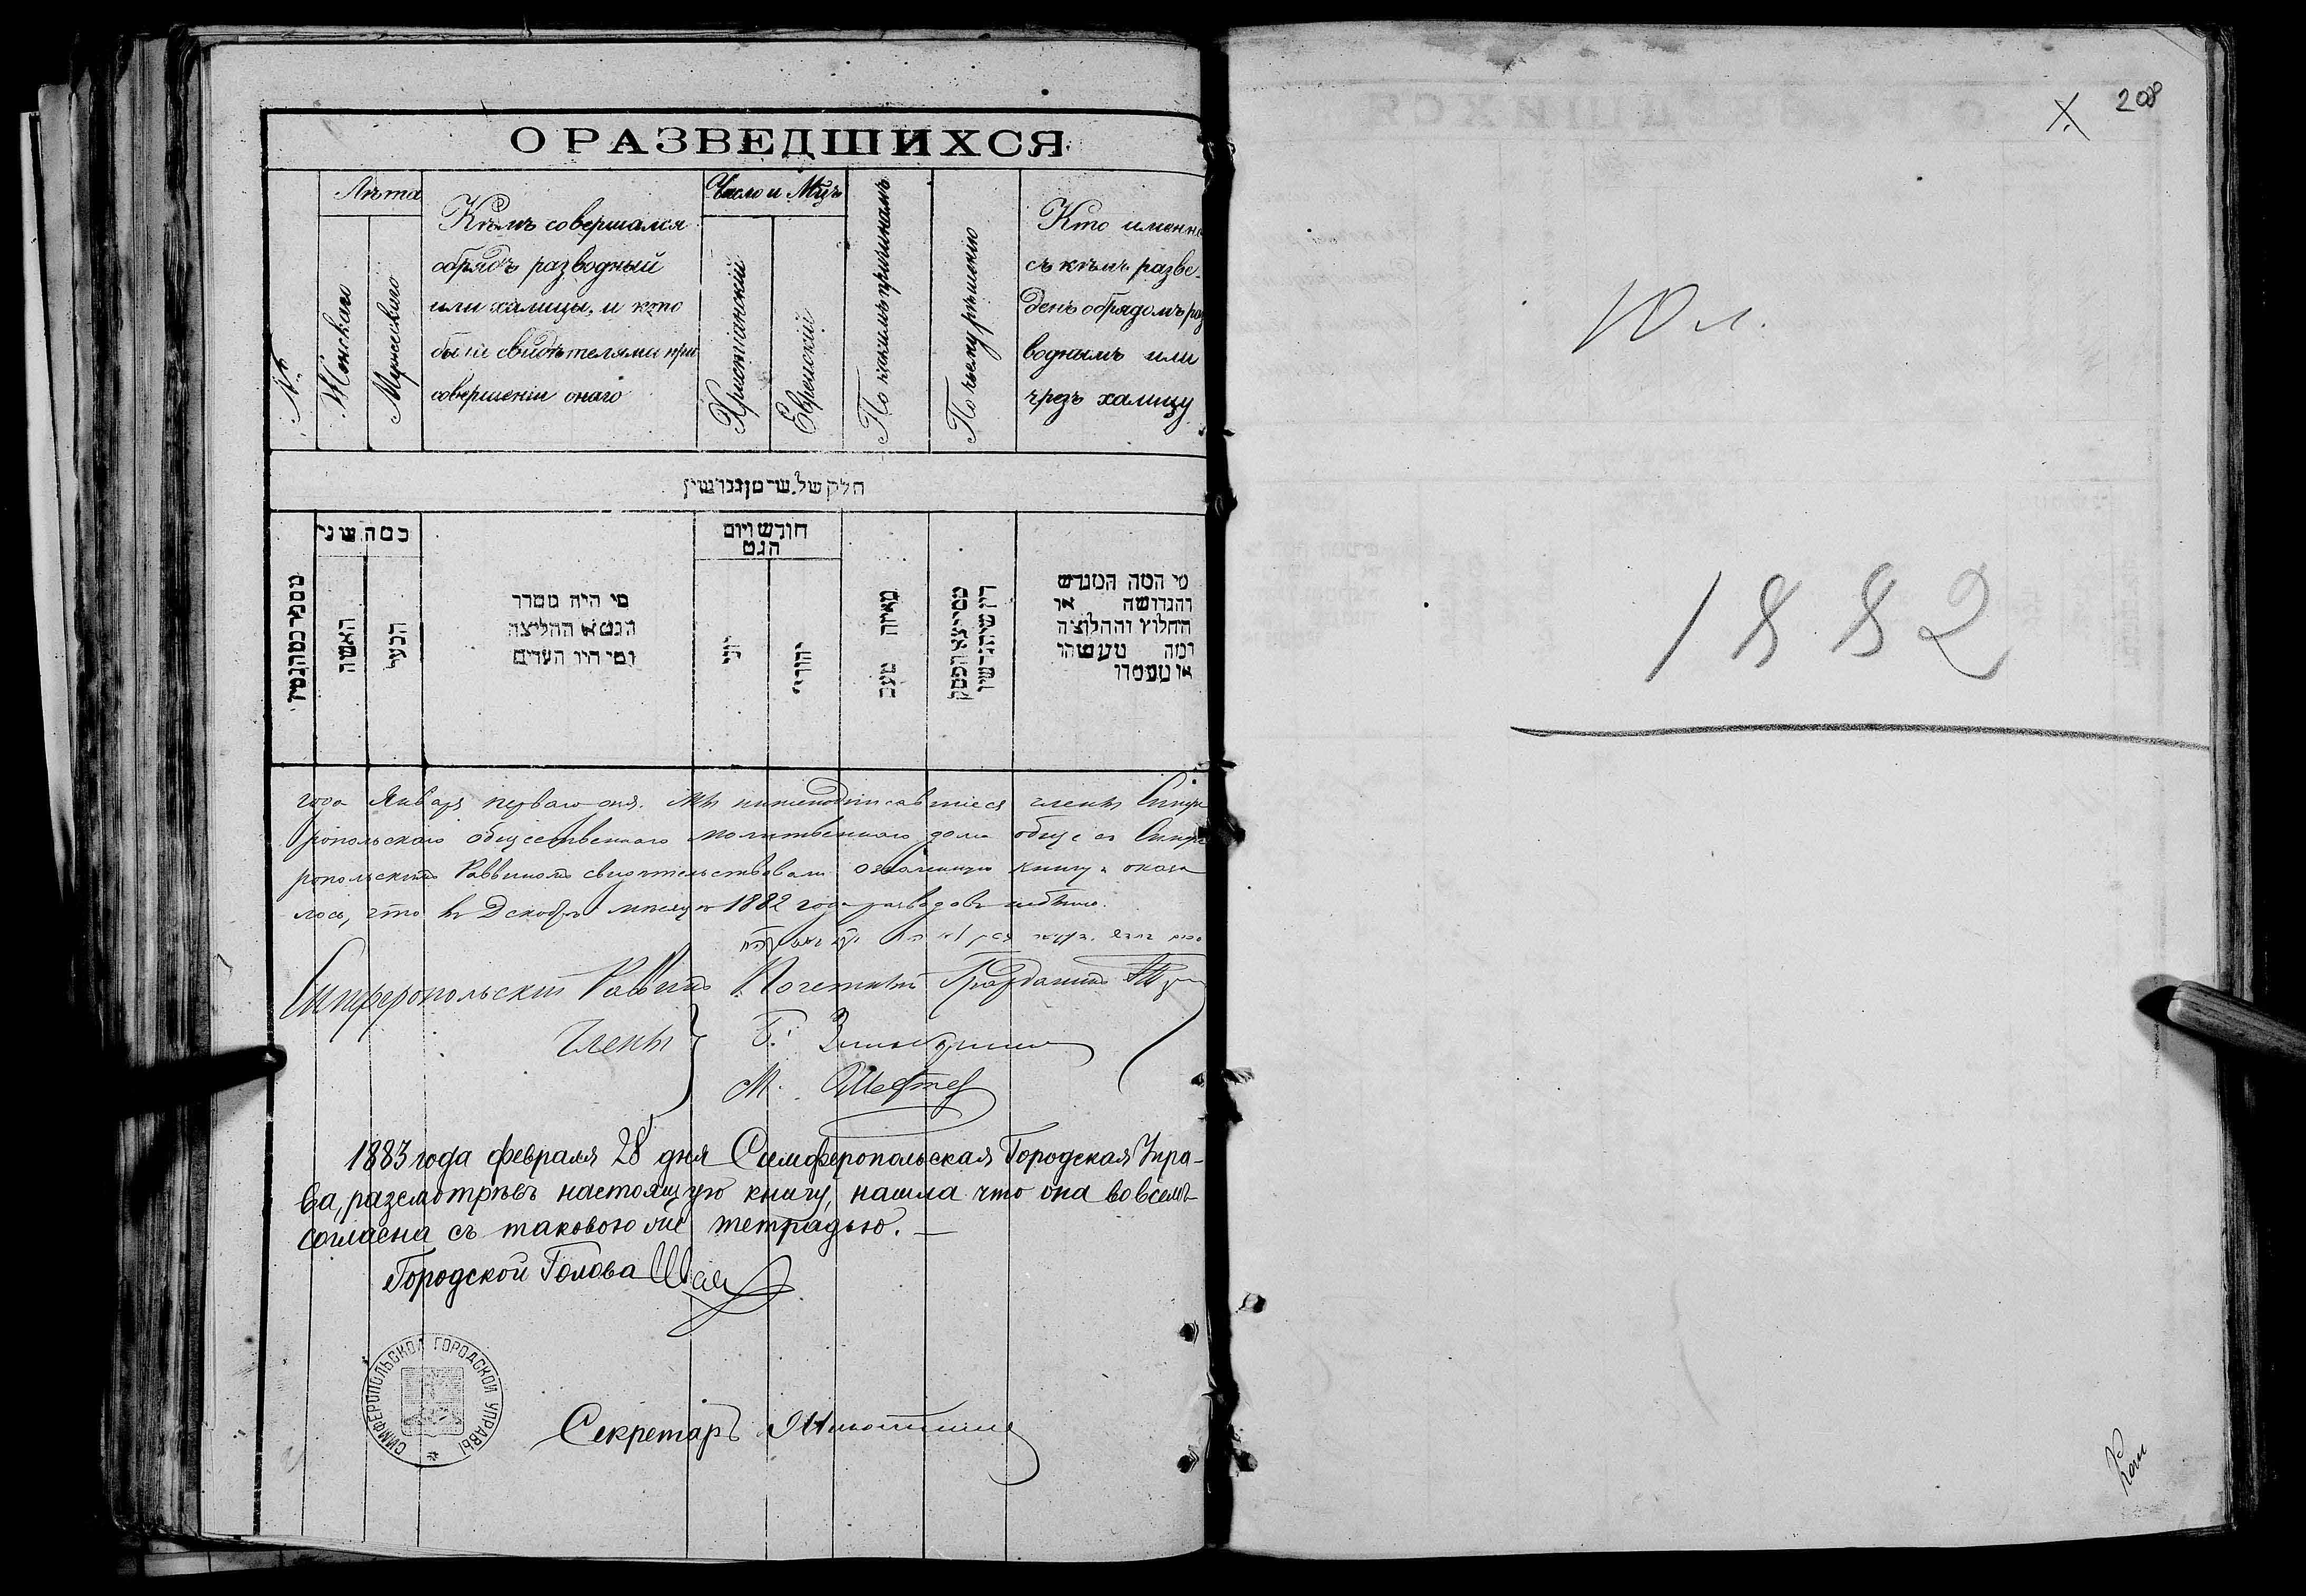 О РАЗВЕДШИХСЯ
№
Лѣта
Женскаго
Мужескаго
Кѣмъ совершался
обрядъ разводный
или халицы, и кто
были свидѣтелями при
совершеніи онаго
Число и Мѣць
Христіанскій
Еврейскій
По какимъ причинамъ
По чьему рѣшенію
Кто именно
съ кѣмъ разве-
денъ обрядомъ раз
воднымъ или
чрезъ халицу
חלק של
כמה שני
האשה
הבעל
מי היה מסדר
הגט או החליצה
ומי היו העדים
חודש ויום
הגט
יהודי
מאיזה
מי המה המגרש
והגרושה או
החלוץ והחלוצה
ומה מעשהו
או מעמדו
года Января перваго дня. Мы нижеподписавшіеся члены Симфе
ропольскаго общественнаго молитвеннаго дома обще съ Симфе
ропольскимъ Раввиномъ свидѣтельствовали означенную книгу и оказа
лось, что въ Декабрѣ мѣсяцѣ 1882 года разводовъ небыло.
Симферопольскій Раввинъ Почетный Гражданинъ
Члены
1883 года февраля 28 дня Симферопольская Городская Упра-
ва, разсмотрѣвъ настоящую книгу, нашла что она во всемъ
согласна съ таковою же тетрадью. —
Городской Голова
СИМФЕРОПОЛЬСКОЙ ГОРОДСКОЙ УПРАВЫ
Секретарь
208
Юл.
1882